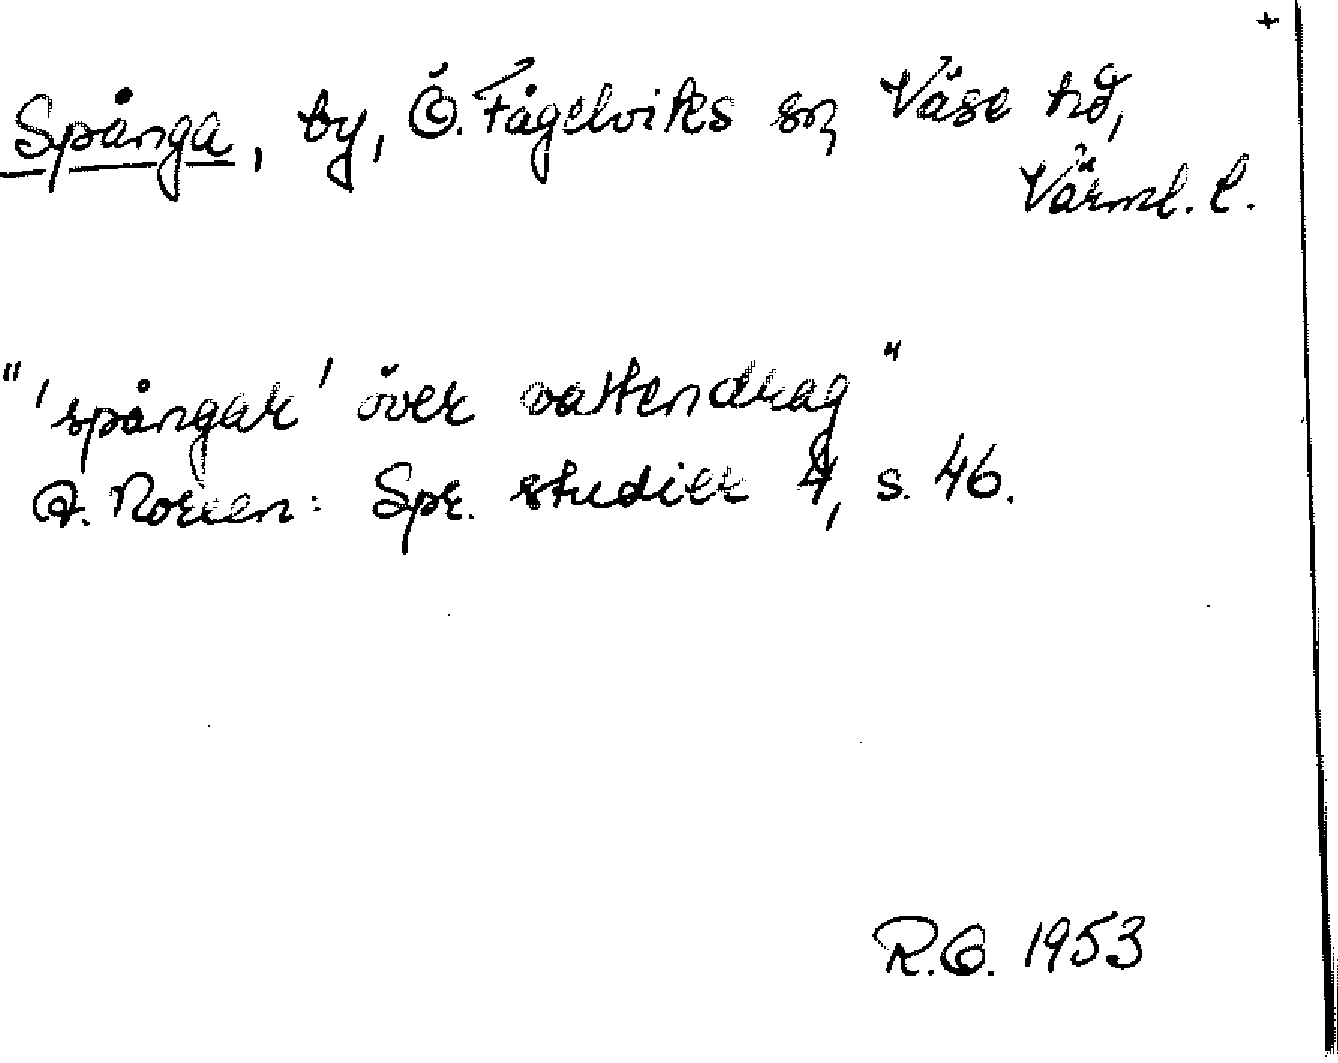 +
Spånga, by, Ö. Fågelviks sn, Väse hd,
Värml. l.
"'spångar' över vattendrag"
A. Noreen: Spr. studier 4, s. 46.
R.O. 1953